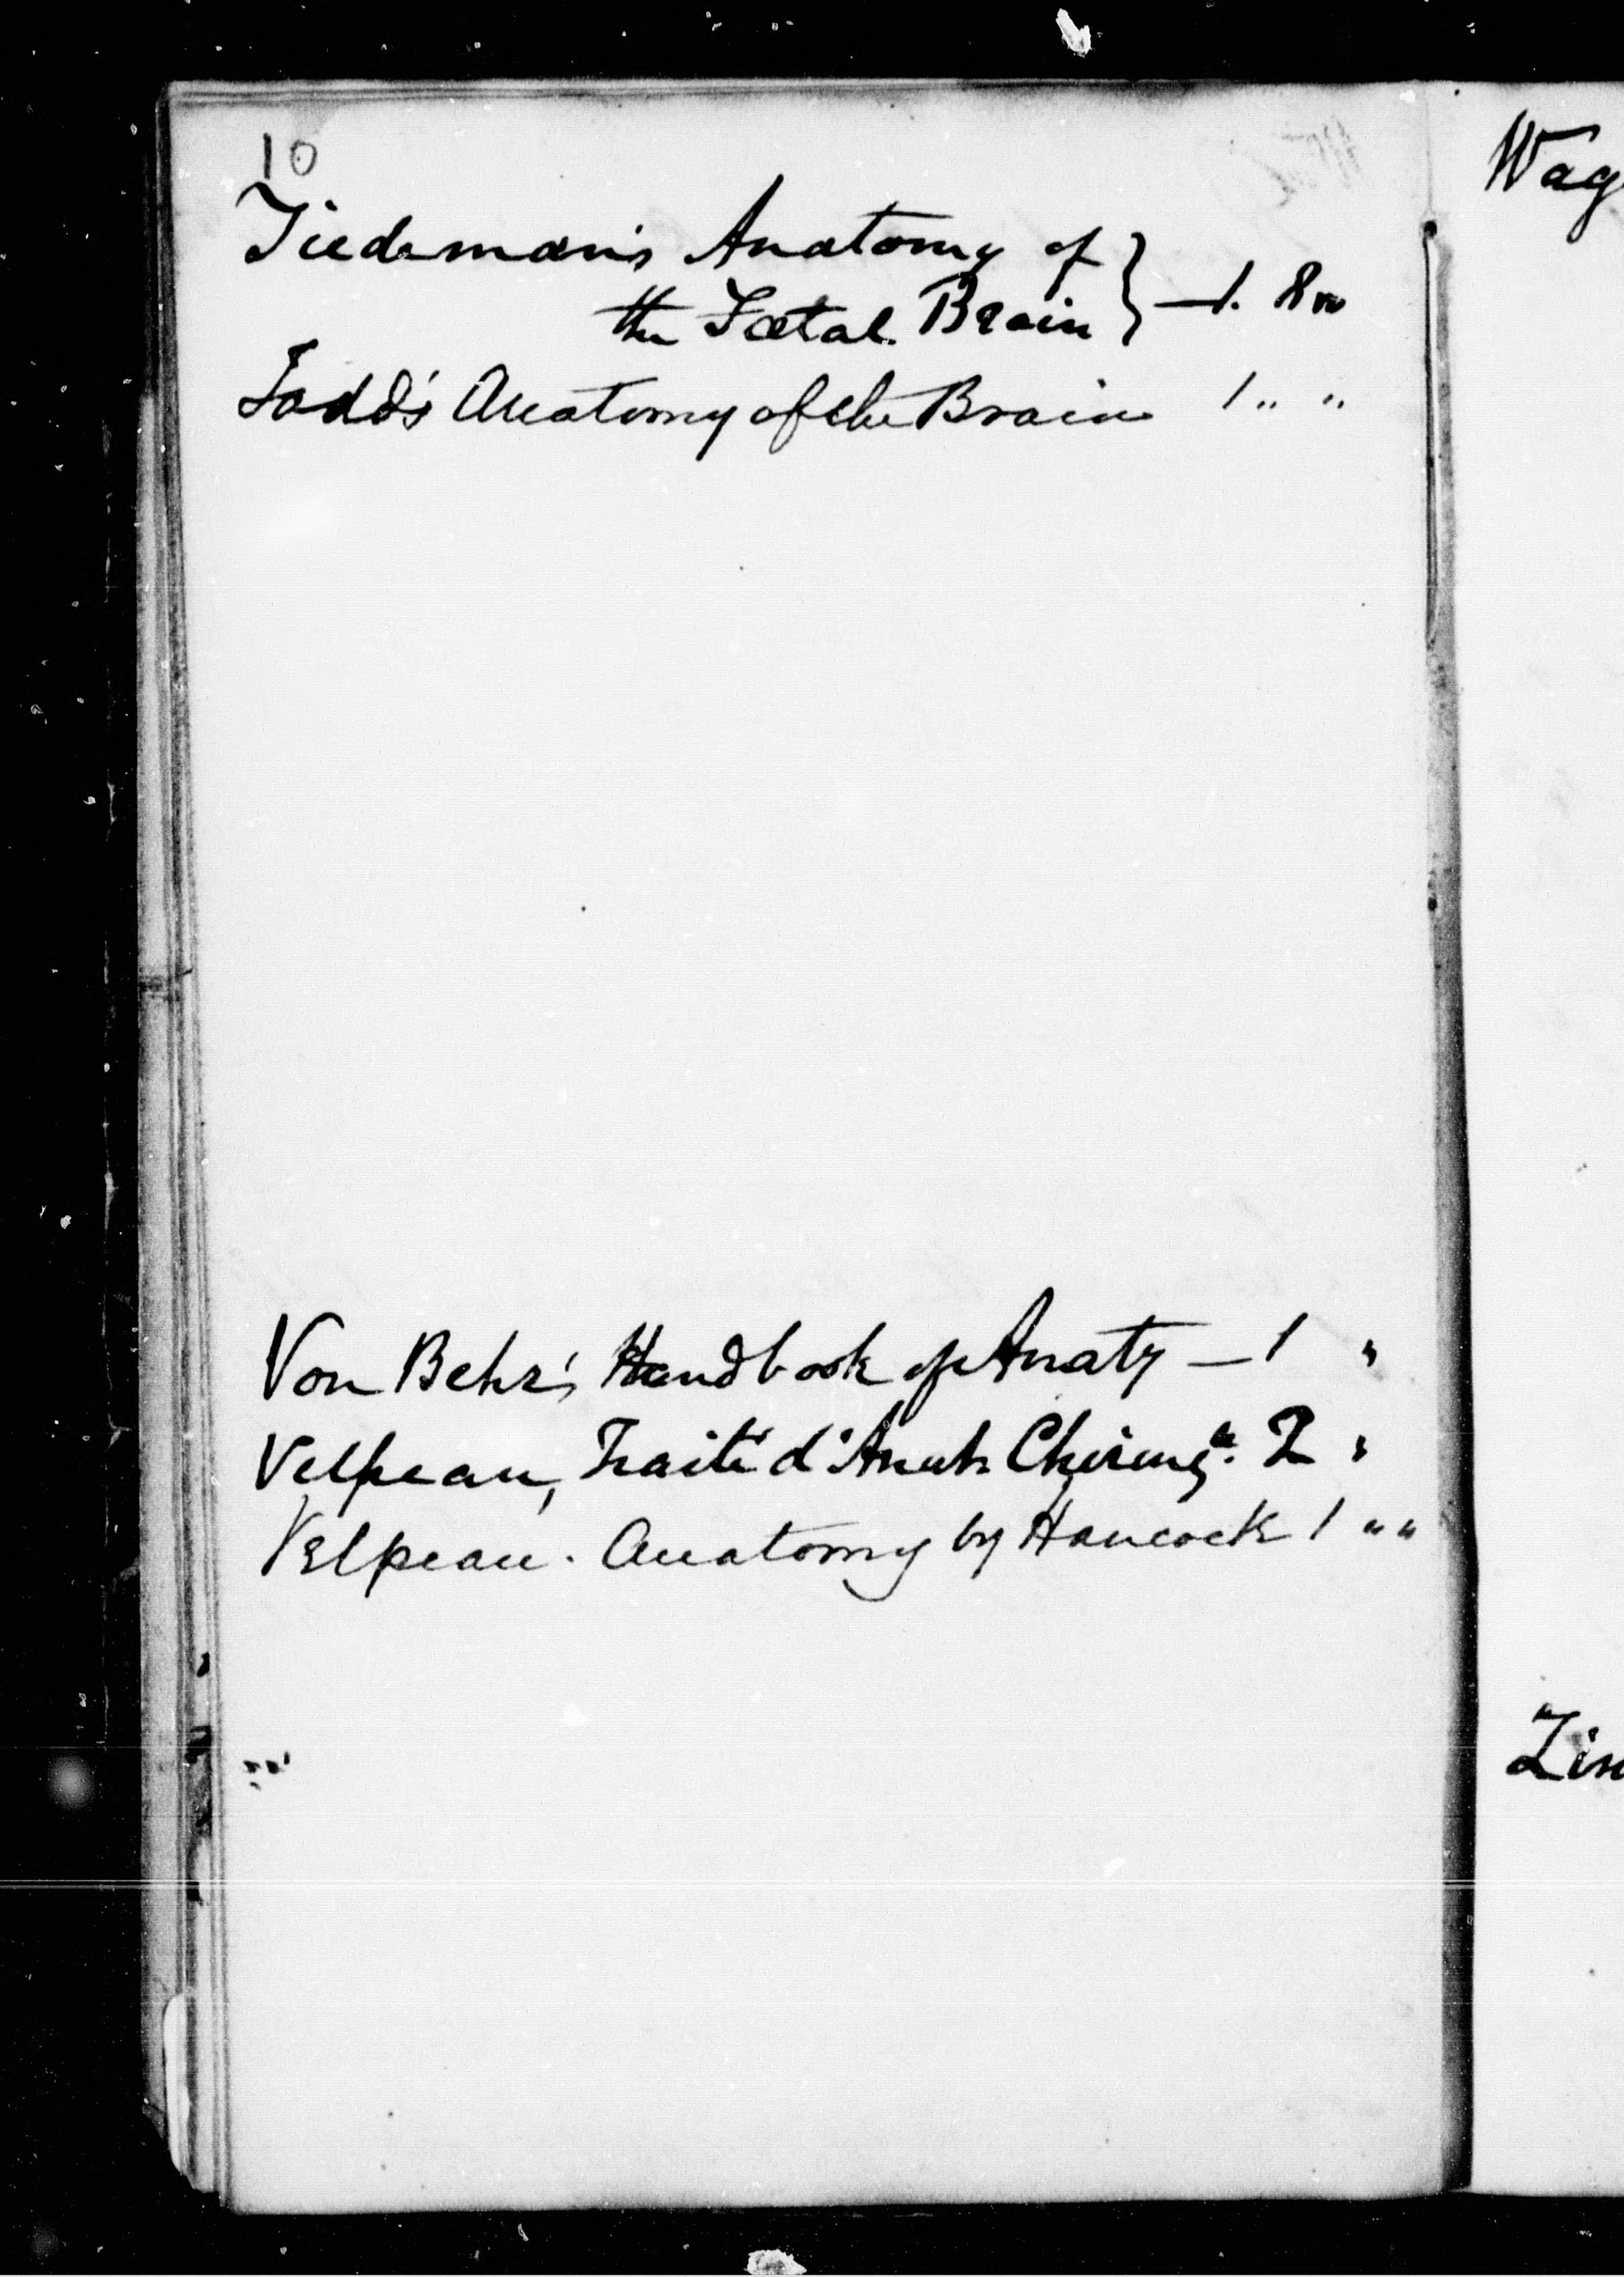 10
Tiedeman's Anatomy of
the Fœtal Brain } — 1. 8vo
Todd's Anatomy of the Brain 1 " "
Von Behr's Handbook of Anaty — 1 "
Velpeau, Traité d'Anat. Chirurgle. 2 "
Velpeau. Anatomy by Hancock 1 " "
Wag
Zin